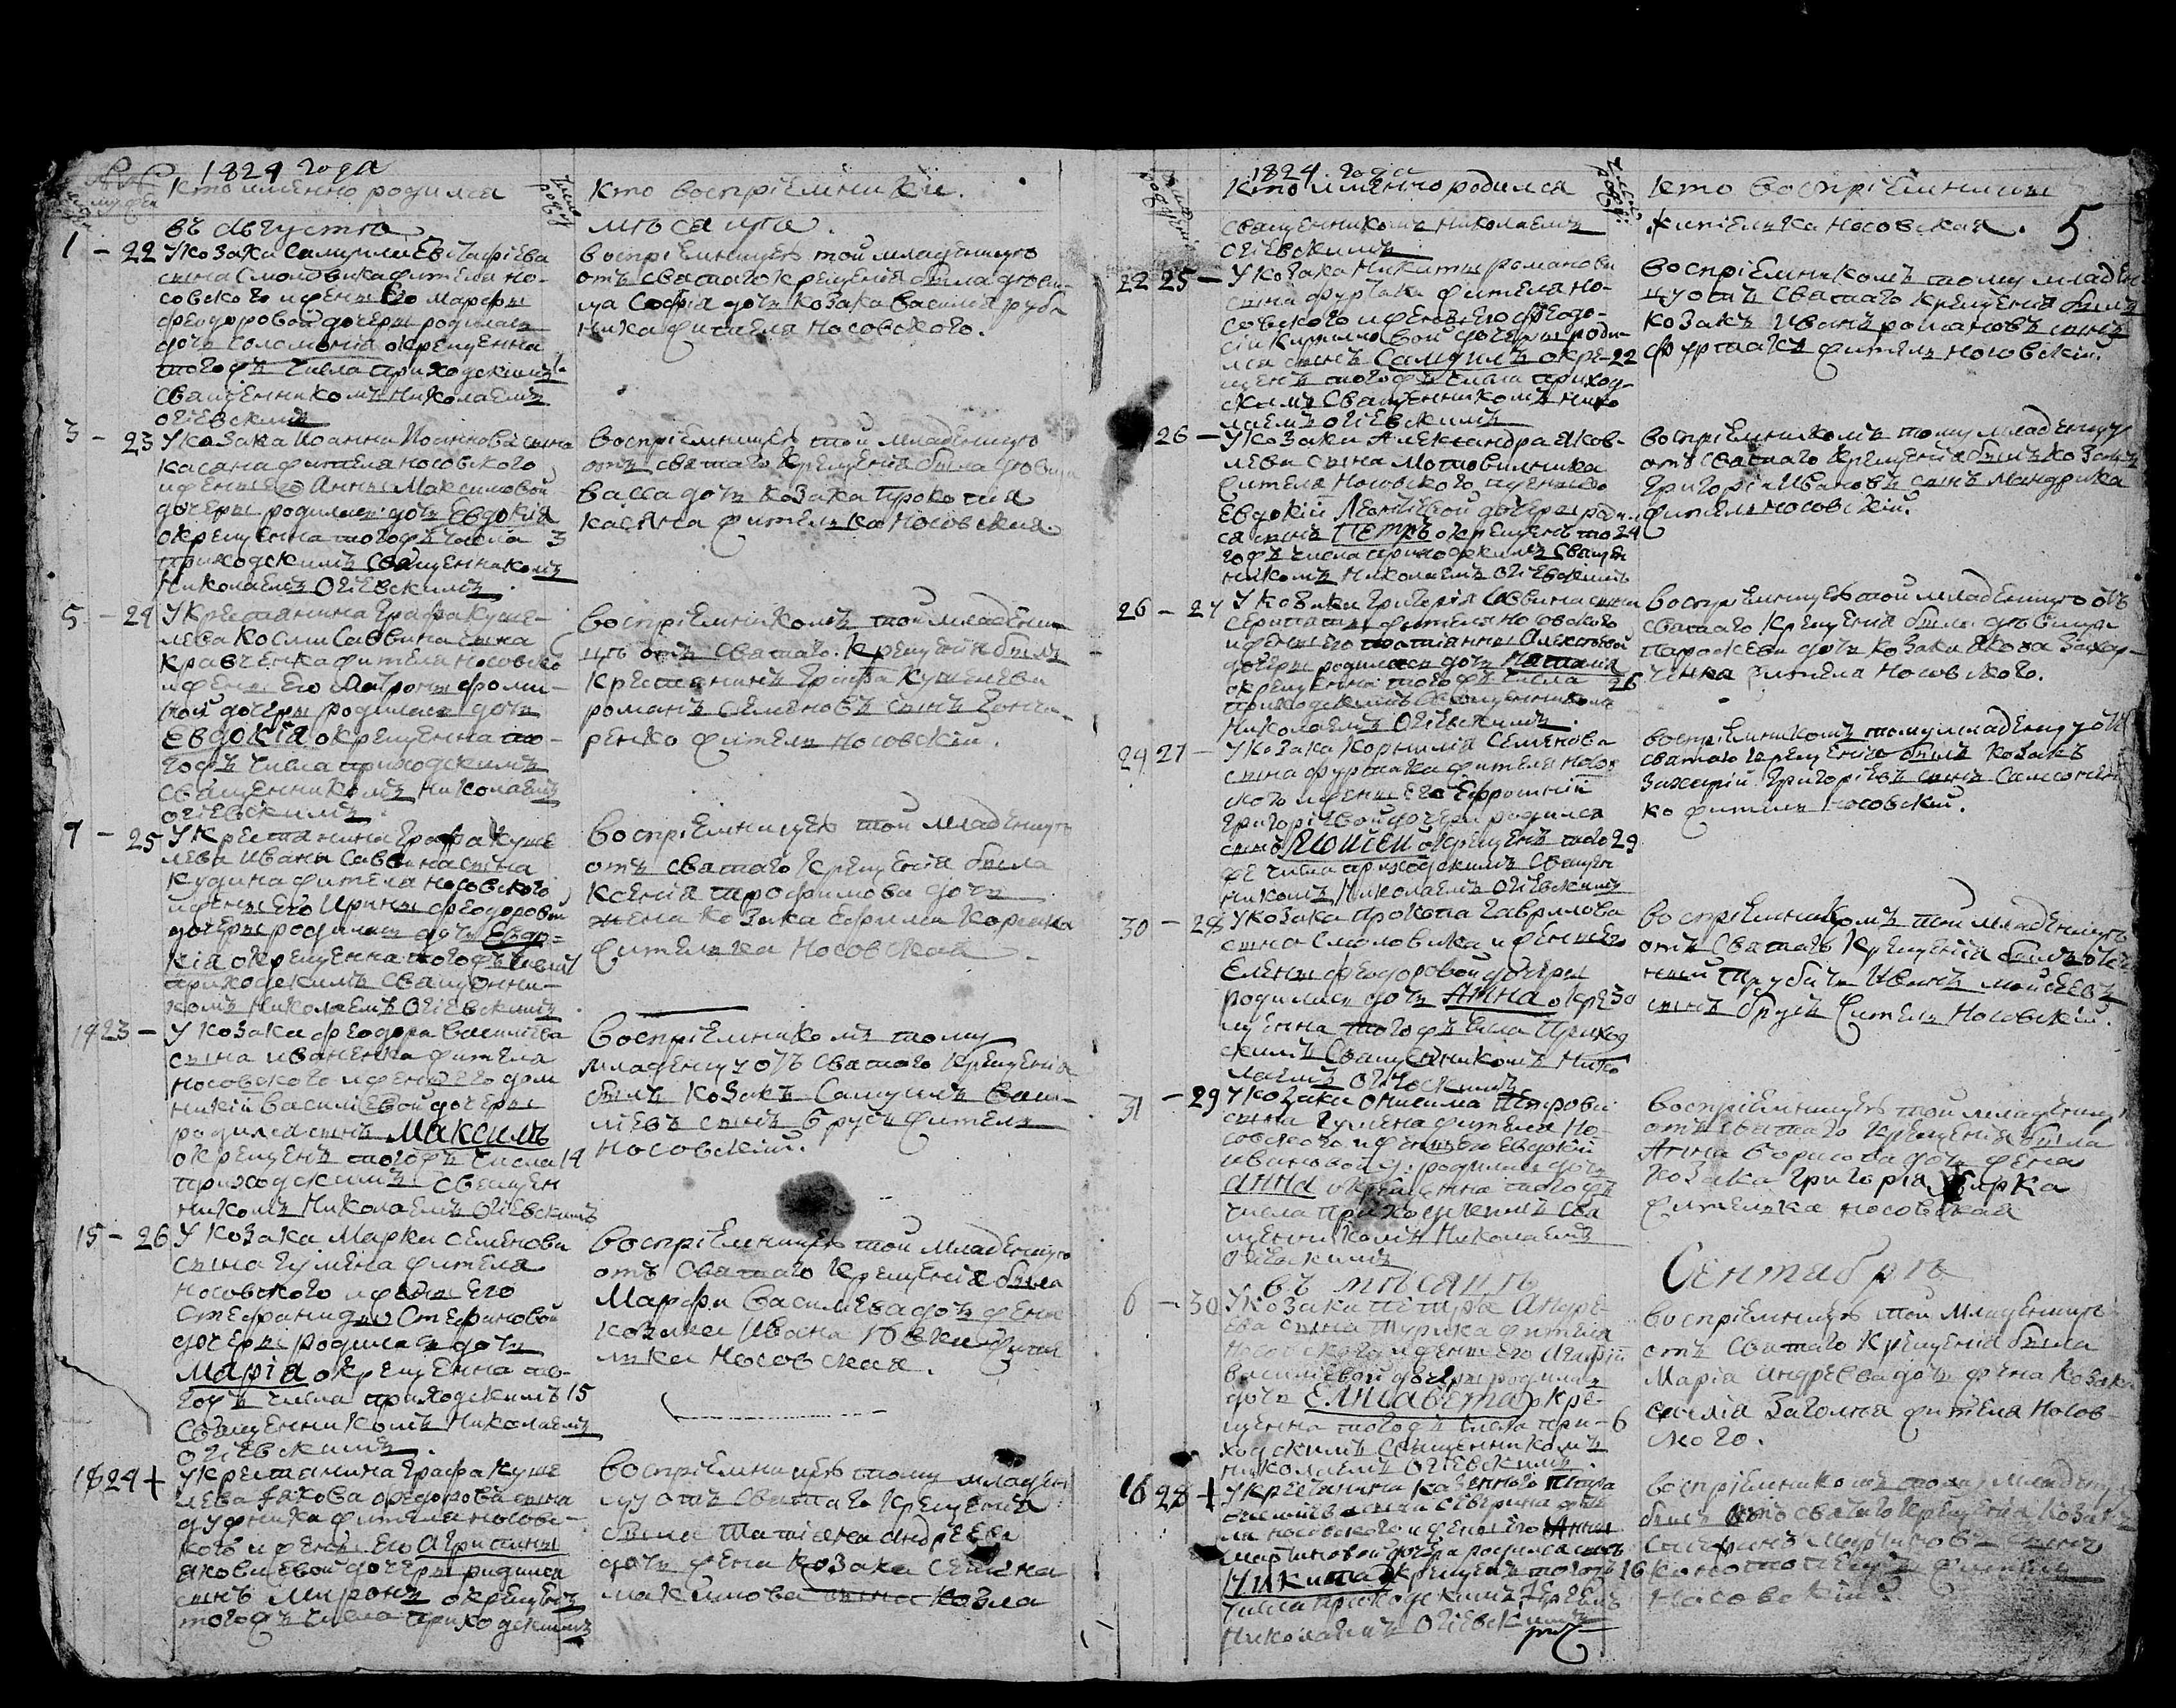 1824 года
Кто именно родился
Кто воспріемники.
въ Августѣ
мѣсяцѣ.
1 - 22 У козака Самуила Евстафіева
сына Смоловика жителя но-
совского и жены Его Марфы
феодоровой дочеры родилась
дочь Соломонія окрещенна
тогожъ числа приходскимъ 1
священникомъ Николаемъ
Огіевскимъ
воспріемницею той младеницѣ
отъ святаго крещенія была девы-
ца Софія дочь козака василія руб
жителя носовского.
3 - 23 У козака Иоанна Иоаннова сына
касяна жителя носовского
и жены Его Анны Максимовой
дочеры родилась дочь Евдокія
окрещенна тогожъ числа 3
приходскимъ священникомъ
Николаемъ Огіевскимъ.
воспріемницею той младеницѣ
отъ святаго крещенія была девица
васса дочь козака прокопія
касяна жителька носовская
5 - 24 У крестянина Графа куше-
лева космы Саввина сына
кравченка жителя носовско
и жены Его Матроны фоми-
ной дочеры родилась дочь
Евдокія окрещенна то-
гожъ числа приходскимъ
священникомъ Николаемъ
огіевскимъ.
воспріемникомъ той младени-
цѣ отъ святаго крещенія былъ
крестянинъ Графа кушелева
романъ Семеновъ сынъ Гонча-
ренко житель носовскій.
7 - 25 У крестянина Графа куше
лева ивана Саввина сына
кудина жителя носовского
и жены Его Ирины феодоровой
дочеры родилась дочь Евдо-
кія окрещенна тогожъ числа 7
приходскимъ священни-
комъ Николаемъ Огіевскимъ.
воспріемницею той младеницѣ
отъ святаго крещенія была
ксенія трофимова дочь
жена козака Ефима
жителька носовская
14 23 - У козака феодора василіева
сына иваненка жителя
носовского и жены Его дом
никіи василіевой дочеры
родился сынъ Максимъ
окрещенъ тогожъ числа 14
приходскимъ священ
никомъ Николаемъ Огіевскимъ
воспріемникомъ тому
младенцу отъ святаго крещенія
былъ козакъ Самуилъ васи-
ліевъ сынъ брусъ житель
носовскій.
15 - 26 У козака Марка Семенова
сына Гумена жителя
носовского и жены Его
Стефаниды Стефановой
дочеры родилась дочь
Марія окрещенна то-
гожъ числа приходскимъ 15
священникомъ Николаемъ
огіевскимъ.
воспріемницею той младеницѣ
отъ святаго крещенія была
Марфа василіева дочь жена
козака ивана жите
лька носовская.
18 24 + У крестянина Графа куше
лева Іакова федорова сына
дужника жителя носовс-
кого и жены Его Агрипины
яковлевой дочеры родился
сынъ миронъ окрещенъ
тогожъ числа приходскимъ
воспріемницею тому младен
цу отъ святаго крещенія
была татіяна андреева
дочь жена козака Семена
максимова сына козла
1824. года
Кто именно родился
Кто воспріемники
5
священникомъ Николаемъ
огіевскимъ
жителька носовская.
22 25 - У козака Никиты романова
сына фуртака жителя но-
совского и жены Его феодо-
сіи кириловой дочеры роди-
лся сынъ Самуилъ окре- 22
щенъ тогожъ числа приход-
скимъ священникомъ Нико
лаемъ огіевскимъ
воспріемникомъ тому младен
цу отъ святаго крещенія былъ
козакъ иванъ романовъ сынъ
фуртакъ житель носовскій.
26 - У козака Александра яков-
лева сына Мотовилника
жителя носовского и жены его
Евдокіи дочеры роди
ся сынъ Петръ окрещенъ то 24
гожъ числа приходскимъ священ
никомъ Николаемъ огіевскимъ
воспріемникомъ тому младенцу
отъ святаго крещенія былъ козакъ
Григорій ивановъ сынъ Мандрика
житель носовскій.
26 - 27 У козака Григорія Саввина сына
жителя носовского
и жены Его татіянны Алексеевой
дочеры родилась дочь Наталія
окрещенна тогожъ числа 26
приходскимъ священникомъ
Николаемъ огіевскимъ.
воспріемницею той младеницѣ отъ
святаго крещенія была девица
параскева дочь козака якова захар-
ченка жителя носовского.
29 27 - У козака корнилія Семенова
сына фуртака жителя носов
ского и жены Его Ефросиніи
Григоріевой дочери родился
сынъ Моисей окрещенъ того 29
же числа приходскимъ священ
никомъ Николаемъ огіевскимъ
воспріемникомъ тому младенцу отъ
святаго крещенія былъ козакъ
захарій Григоріевъ сынъ Самсонен
ко житель носовскій.
30 - 28 У козака прокопа гаврилова
сына Смоловика и жены Его
Елены феодоровой дочеры
родилась дочь Анна окре 30
щенна тогожъ числа приход
скимъ священникомъ Нико
лаемъ огіевскимъ
воспріемникомъ той младеницѣ
отъ святаго крещенія былъ
трубачъ иванъ мойсеевъ
сынъ брусъ житель носовскій.
31 - 29 У козака онисима Петрова
сына Гумена жителя но
совского и жены его Евдокіи
ивановой д: родилась дочь
анна окрещенна тогожъ
числа приходскимъ свя
щенникомъ Николаемъ
огіевскимъ
воспріемницею той младениц
отъ святаго крещенія была
Анна борисова дочь жена
козака григорія
жителька носовская
въ мѣсяцѣ
Сентябрѣ
6 - 30 У козака петра Андре-
ева сына турика жителя
носовского и жены Его Агафіи
василіевой дочеры родилась
дочь Елисавета окре-
щенна тогожъ числа при- 6
ходскимъ священникомъ
николаемъ огіевскимъ.
воспріемницею той младеницѣ
отъ святаго крещенія была
Марія андреева дочь жена козака
жителя носов-
ского.
16 28 + У крестянина казенного
сына Северина жите
ля носовского и жены его Анны
мартиновой дочери родился сынъ
Никита окрещенъ тогожъ 16
числа приходскимъ Іереемъ
Николаемъ Огіевскимъ
воспріемникомъ тому младенцу
былъ отъ святаго крещенія козакъ
Стефанъ сынъ
житель
Носовскій.